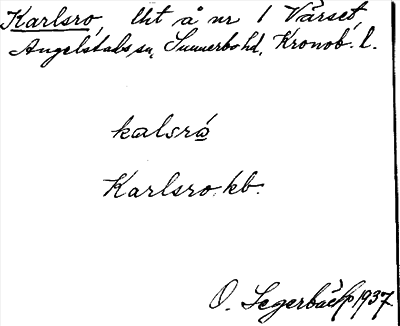 Karlsro, lht å nr 1 Vårset,
Angelstads sn, Sunnerbo hd, Kronob. l.
kalsró
Karlsro. kb.
O. Segerbäck 1937